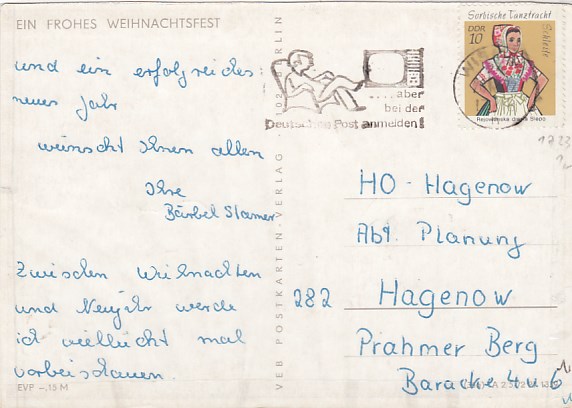 EIN FROHES WEIHNACHTSFEST
und ein erfolgreiches
neues Jahr
wünscht Ihnen allen
Ihre
Bärbel
Zwischen Weihnachten
und Neujahr werde
ich vielleicht mal
vorbeischauen.
EVP –,15 M
VEB POSTKARTEN-VERLAG BERLIN
... aber
bei der
Deutschen Post anmelden!
Sorbische Tanztracht
Schleife
DDR
10
HO - Hagenow
Abt. Planung
282 Hagenow
Prahmer Berg
Baracke 4 u 6